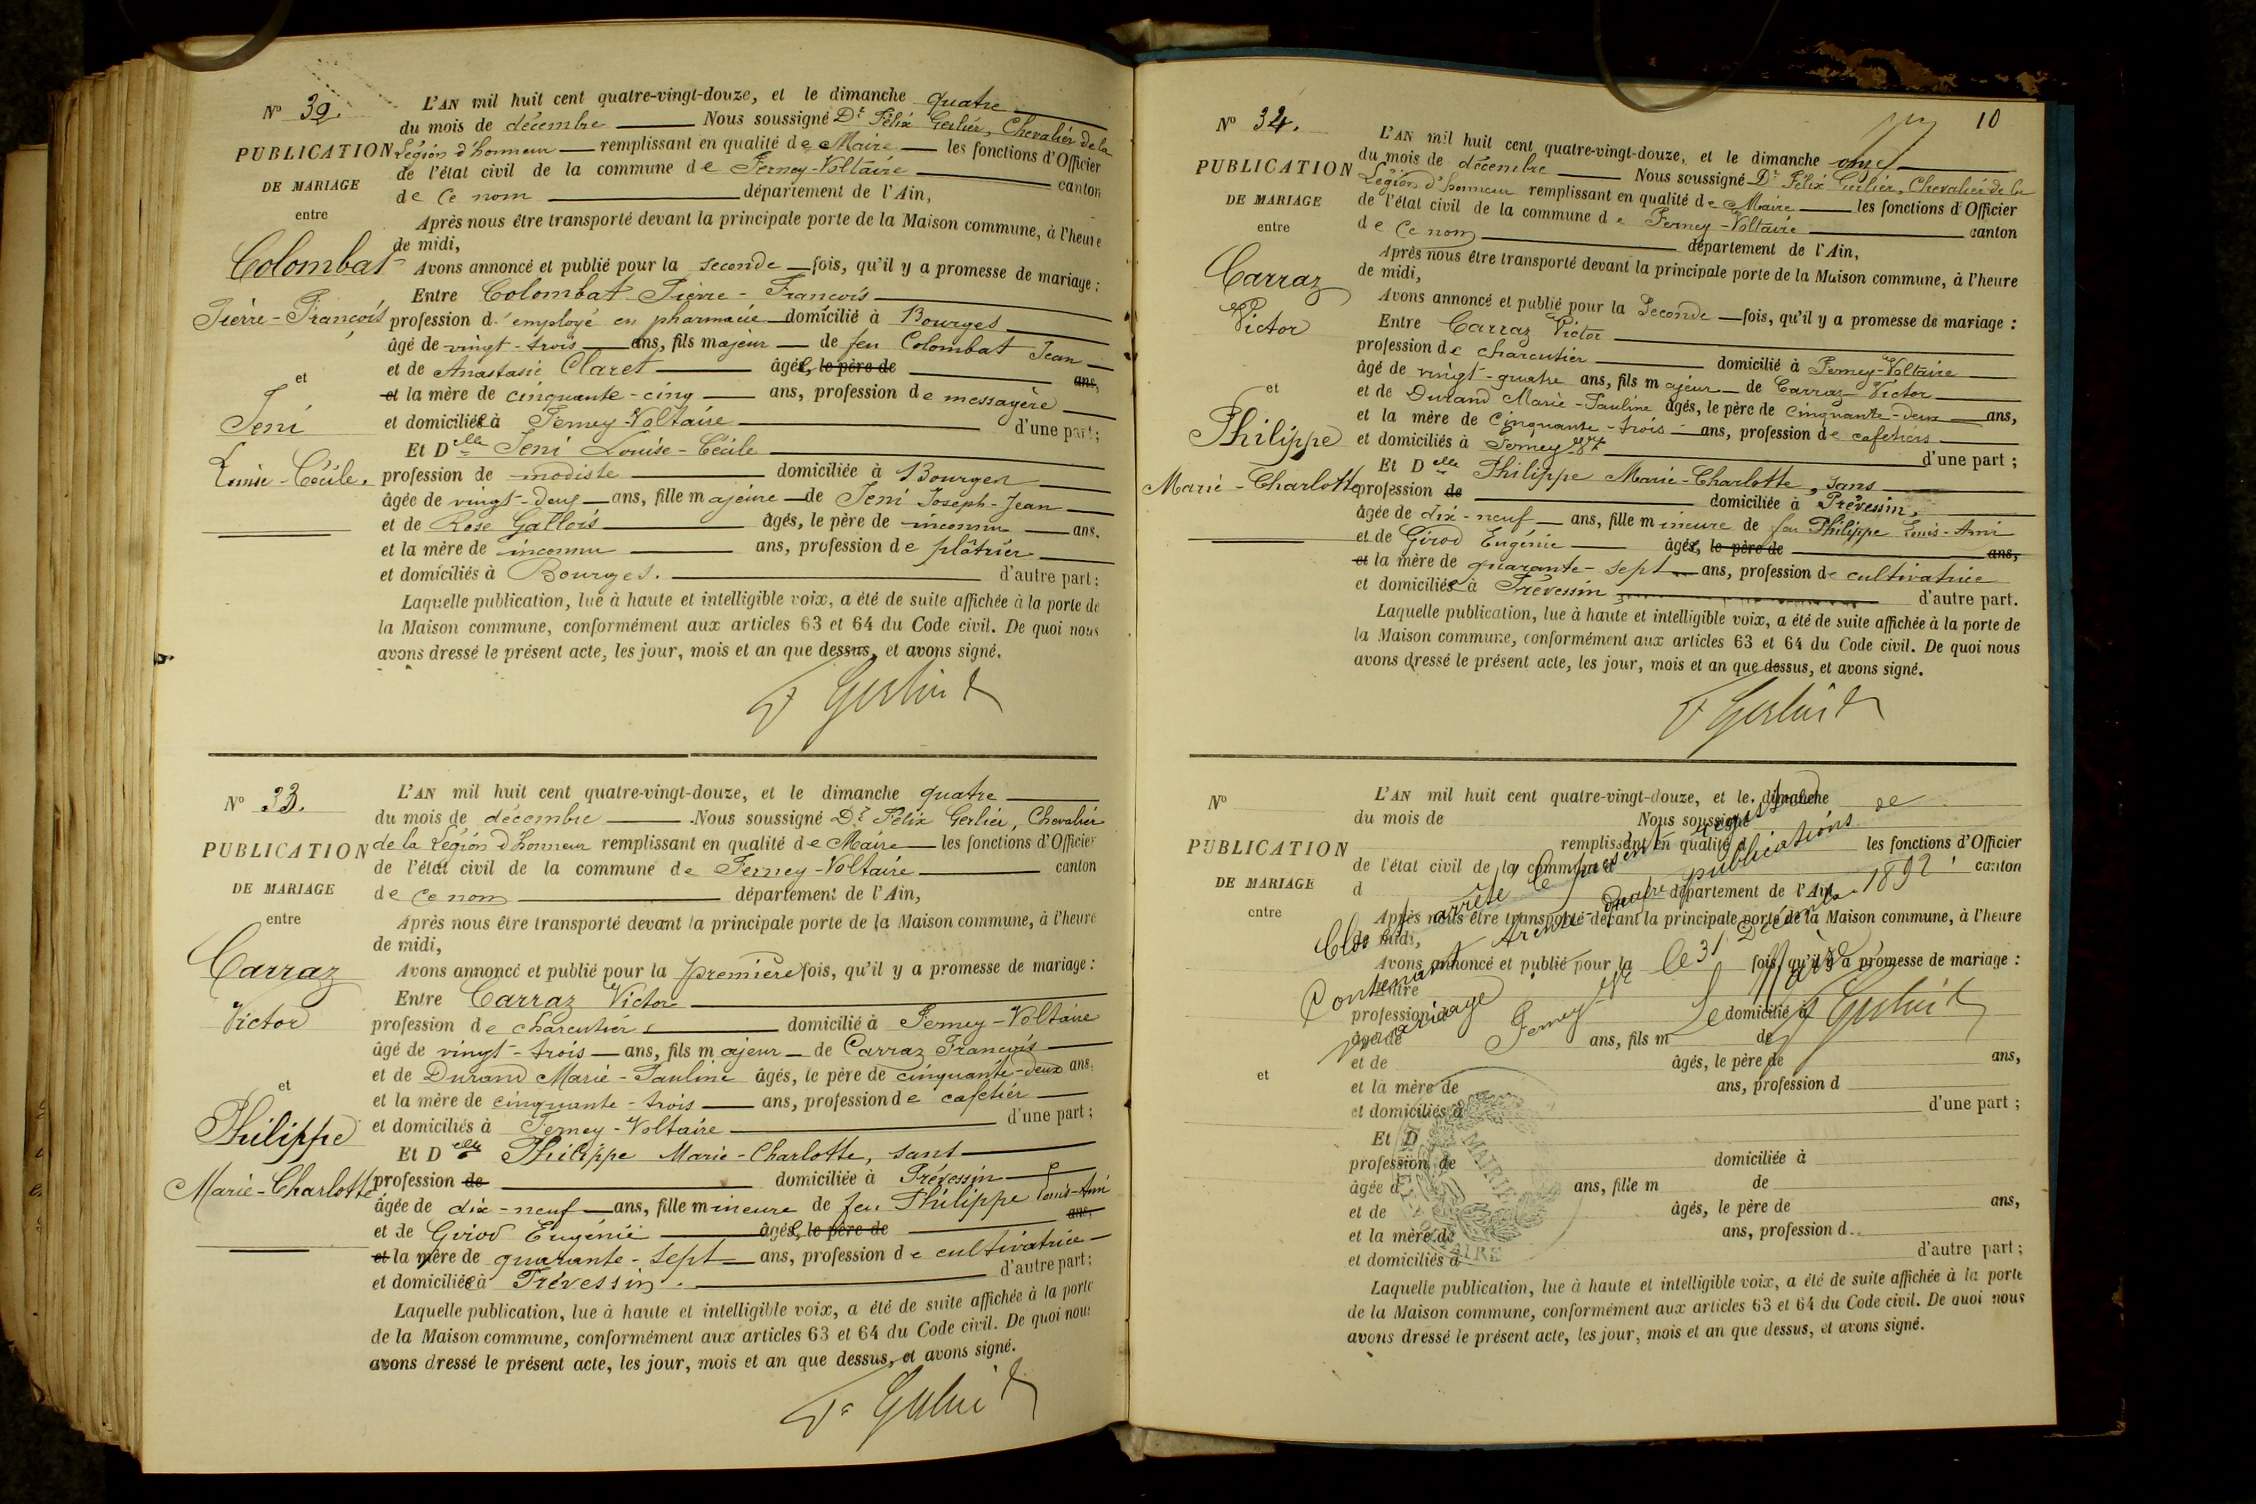 N° 32.
PUBLICATION
DE MARIAGE
entre
Colombat
Pierre-François
et
Jeni
Louise-Cécile.
L'AN mil huit cent quatre-vingt-douze, et le dimanche quatre
du mois de décembre Nous soussigné Dr Félix Gerlier, Chevalier de la
Légion d'honneur remplissant en qualité de Maire les fonctions d'Officier
de l'état civil de la commune de Ferney-Voltaire canton
de ce nom département de l'Ain,
Après nous être transporté devant la principale porte de la Maison commune, à l'heure
de midi,
Avons annoncé et publié pour la seconde fois, qu'il y a promesse de mariage :
Entre Colombat Pierre-François
profession d'employé en pharmacie domicilié à Bourges
âgé de vingt-trois ans, fils majeur de feu Colombat Jean
et de Anastasie Claret âgée, le père de ans,
et la mère de cinquante-cinq ans, profession de messagère
et domiciliée à Ferney-Voltaire d'une part ;
Et Delle Jeni Louise-Cécile
profession de modiste domiciliée à Bourges
âgée de vingt-deux ans, fille majeure de Jeni Joseph-Jean
et de Rose Gallois âgés, le père de inconnu ans.
et la mère de inconnu ans, profession de plâtrier
et domiciliés à Bourges. d'autre part ;
Laquelle publication, lue à haute et intelligible voix, a été de suite affichée à la porte de
la Maison commune, conformément aux articles 63 et 64 du Code civil. De quoi nous
avons dressé le présent acte, les jour, mois et an que dessus, et avons signé.
Dr Gerlier
N° 33.
PUBLICATION
DE MARIAGE
entre
Carraz
Victor
et
Philippe
Marie-Charlotte
L'AN mil huit cent quatre-vingt-douze, et le dimanche quatre
du mois de décembre Nous soussigné Dr Félix Gerlier, Chevalier
de la Légion d'honneur remplissant en qualité de Maire les fonctions d'Officier
de l'état civil de la commune de Ferney-Voltaire canton
de ce nom département de l'Ain,
Après nous être transporté devant la principale porte de la Maison commune, à l'heure
de midi,
Avons annoncé et publié pour la première fois, qu'il y a promesse de mariage :
Entre Carraz Victor
profession de charcutier domicilié à Ferney-Voltaire
âgé de vingt-trois ans, fils majeur de Carraz François
et de Durand Marie-Pauline âgés, le père de cinquante-deux ans,
et la mère de cinquante-trois ans, profession de cafetier
et domiciliés à Ferney-Voltaire d'une part ;
Et Delle Philippe Marie-Charlotte, sans
profession de domiciliée à Prévessin
âgée de dix-neuf ans, fille mineure de feu Philippe Louis-Ami
et de Girod Eugénie âgée, le père de ans,
et la mère de quarante-sept ans, profession de cultivatrice
et domiciliée à Prévessin. d'autre part ;
Laquelle publication, lue à haute et intelligible voix, a été de suite affichée à la porte
de la Maison commune, conformément aux articles 63 et 64 du Code civil. De quoi nous
avons dressé le présent acte, les jour, mois et an que dessus, et avons signé.
Dr Gerlier
10
N° 34.
PUBLICATION
DE MARIAGE
entre
Carraz
Victor
et
Philippe
Marie-Charlotte
L'AN mil huit cent quatre-vingt-douze, et le dimanche onze
du mois de décembre Nous soussigné Dr Félix Gerlier, Chevalier de la
Légion d'honneur remplissant en qualité de Maire les fonctions d'Officier
de l'état civil de la commune de Ferney-Voltaire canton
de ce nom département de l'Ain,
Après nous être transporté devant la principale porte de la Maison commune, à l'heure
de midi,
Avons annoncé et publié pour la Seconde fois, qu'il y a promesse de mariage :
Entre Carraz Victor
profession de charcutier domicilié à Ferney-Voltaire
âgé de vingt-quatre ans, fils majeur de Carraz Victor
et de Durand Marie-Pauline âgés, le père de cinquante-deux ans,
et la mère de cinquante-trois ans, profession de cafetiers
et domiciliés à Ferney d'une part ;
Et Delle Philippe Marie-Charlotte, sans
profession de domiciliée à Prévessin,
âgée de dix-neuf ans, fille mineure de feu Philippe Louis-Ami
et de Girod Eugénie âgée, le père de ans,
et la mère de quarante-sept ans, profession de cultivatrice
et domiciliée à Prévessin d'autre part.
Laquelle publication, lue à haute et intelligible voix, a été de suite affichée à la porte de
la Maison commune, conformément aux articles 63 et 64 du Code civil. De quoi nous
avons dressé le présent acte, les jour, mois et an que dessus, et avons signé.
Dr Gerlier
N°
PUBLICATION
DE MARIAGE
entre
et
L'AN mil huit cent quatre-vingt-douze, et le dimanche
du mois de Nous soussigné
remplissant en qualité d les fonctions d'Officier
de l'état civil de la commune d canton
d département de l'Ain,
Après nous être transporté devant la principale porte de la Maison commune, à l'heure
de midi,
Avons annoncé et publié pour la fois, qu'il y a promesse de mariage :
Entre
profession d domicilié à
âgé de ans, fils m de
et de âgés, le père de ans,
et la mère de ans, profession d
et domiciliés à d'une part ;
Et D
profession de domiciliée à
âgée d ans, fille m de
et de âgés, le père de ans,
et la mère de ans, profession d
et domiciliés à d'autre part ;
Laquelle publication, lue à haute et intelligible voix, a été de suite affichée à la porte
de la Maison commune, conformément aux articles 63 et 64 du Code civil. De quoi nous
avons dressé le présent acte, les jour, mois et an que dessus, et avons signé.
Clos et arrêté le présent registre
Contenant trente-quatre publications de
mariage
Ferney le 31 Décembre 1892.
Le Maire
Dr Gerlier
MAIRIE